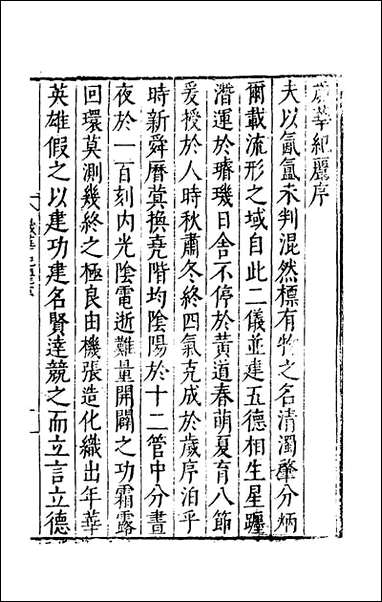 歲華紀麗序
夫以氤氳未判混然標有物之名清濁肇分炳
爾載流形之域自此二儀並建五德相生星躔
潛運於璿璣日舍不停於黃道春萌夏育八節
爰授於人時秋肅冬終四氣克成於歲序洎乎
時新舜曆蓂換堯階均陰陽於十二管中分晝
夜於一百刻内光陰電逝難量開闢之功霜露
回環莫測幾終之極良由機張造化織出年華
英雄假之以建功建名賢達競之而立言立德